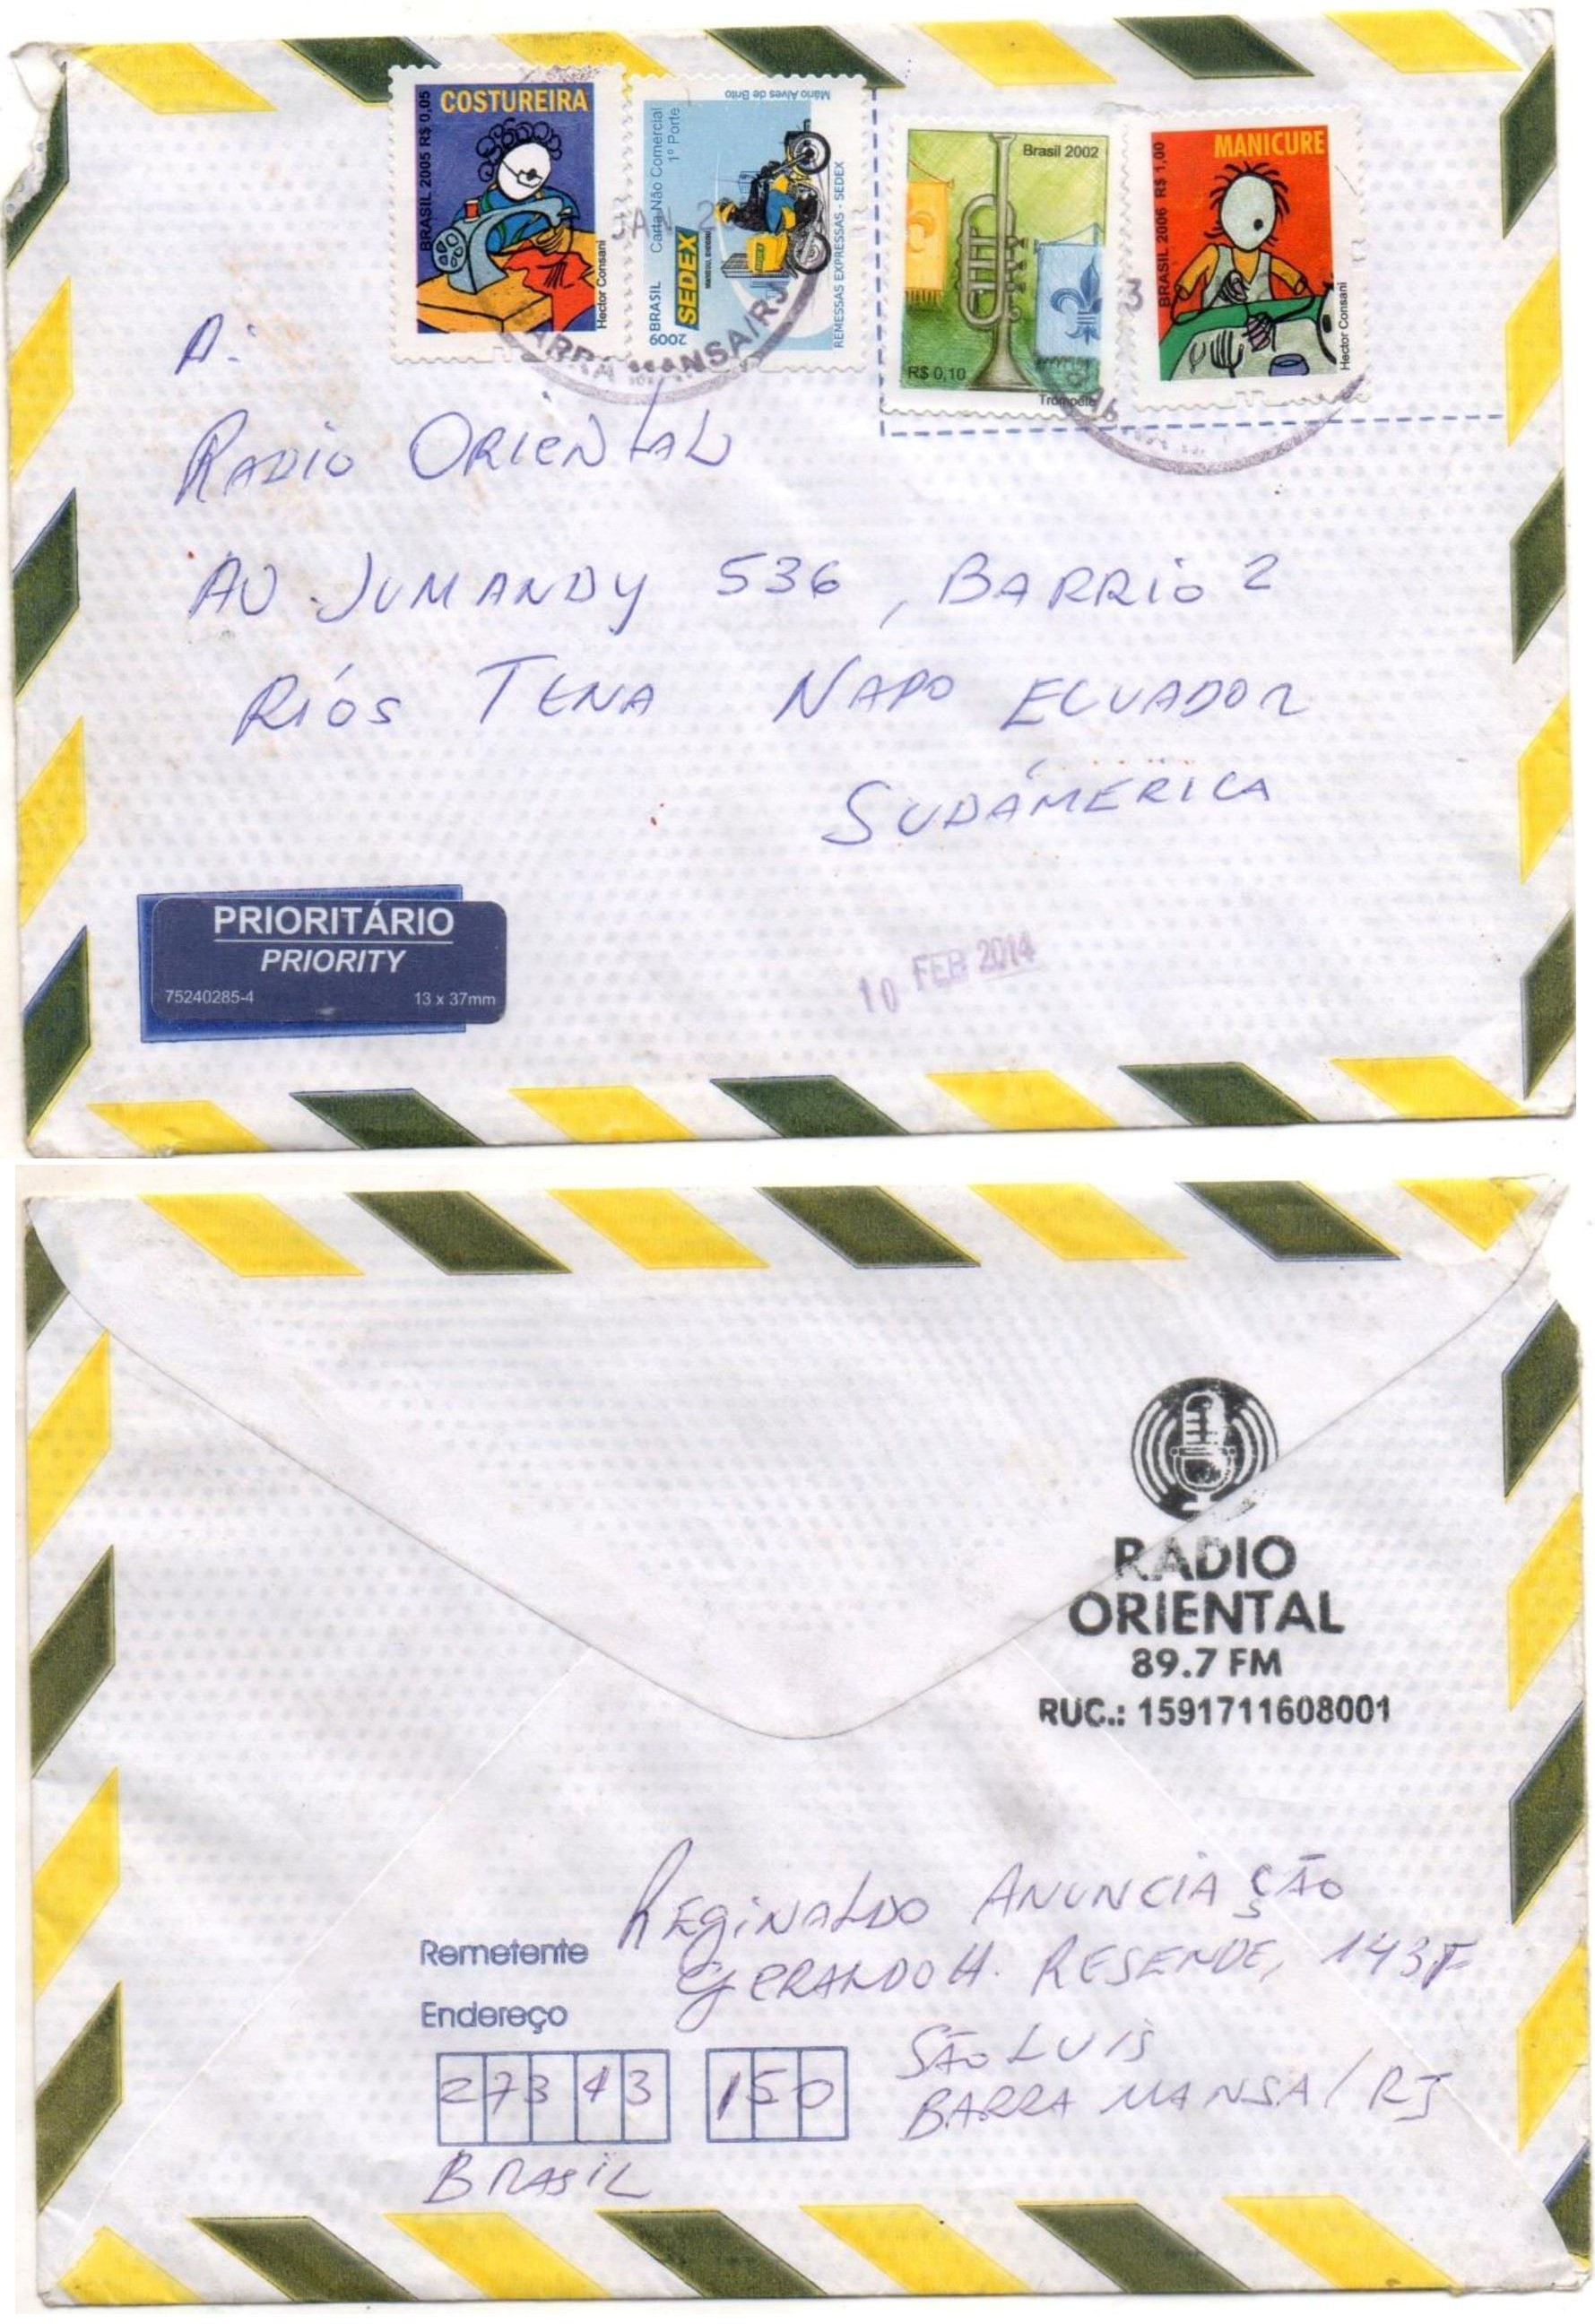 COSTUREIRA
BRASIL 2005 R$ 0,05
Hector Consani
Mário Alves de Brito
BRASIL Carta Não Comercial
1º Porte
2009
SEDEX
REMESSAS EXPRESSAS - SEDEX
Brasil 2002
R$ 0,10
Trompete
MANICURE
BRASIL 2006 R$ 1,00
Hector Consani
BARRA MANSA/RJ
A:
RADIO ORIENTAL
AV JUMANDY 536, BARRIO 2
RÍOS TENA NAPO ECUADOR
SUDÁMERICA
PRIORITÁRIO
PRIORITY
75240285-4 13 x 37mm
10 FEB 2014
RADIO
ORIENTAL
89.7 FM
RUC.: 1591711608001
Remetente REGINALDO ANUNCIAÇÃO
GERALDO H. RESENDE, 143F
Endereço
SÃO LUIS
27343 150 BARRA MANSA/RJ
BRASIL